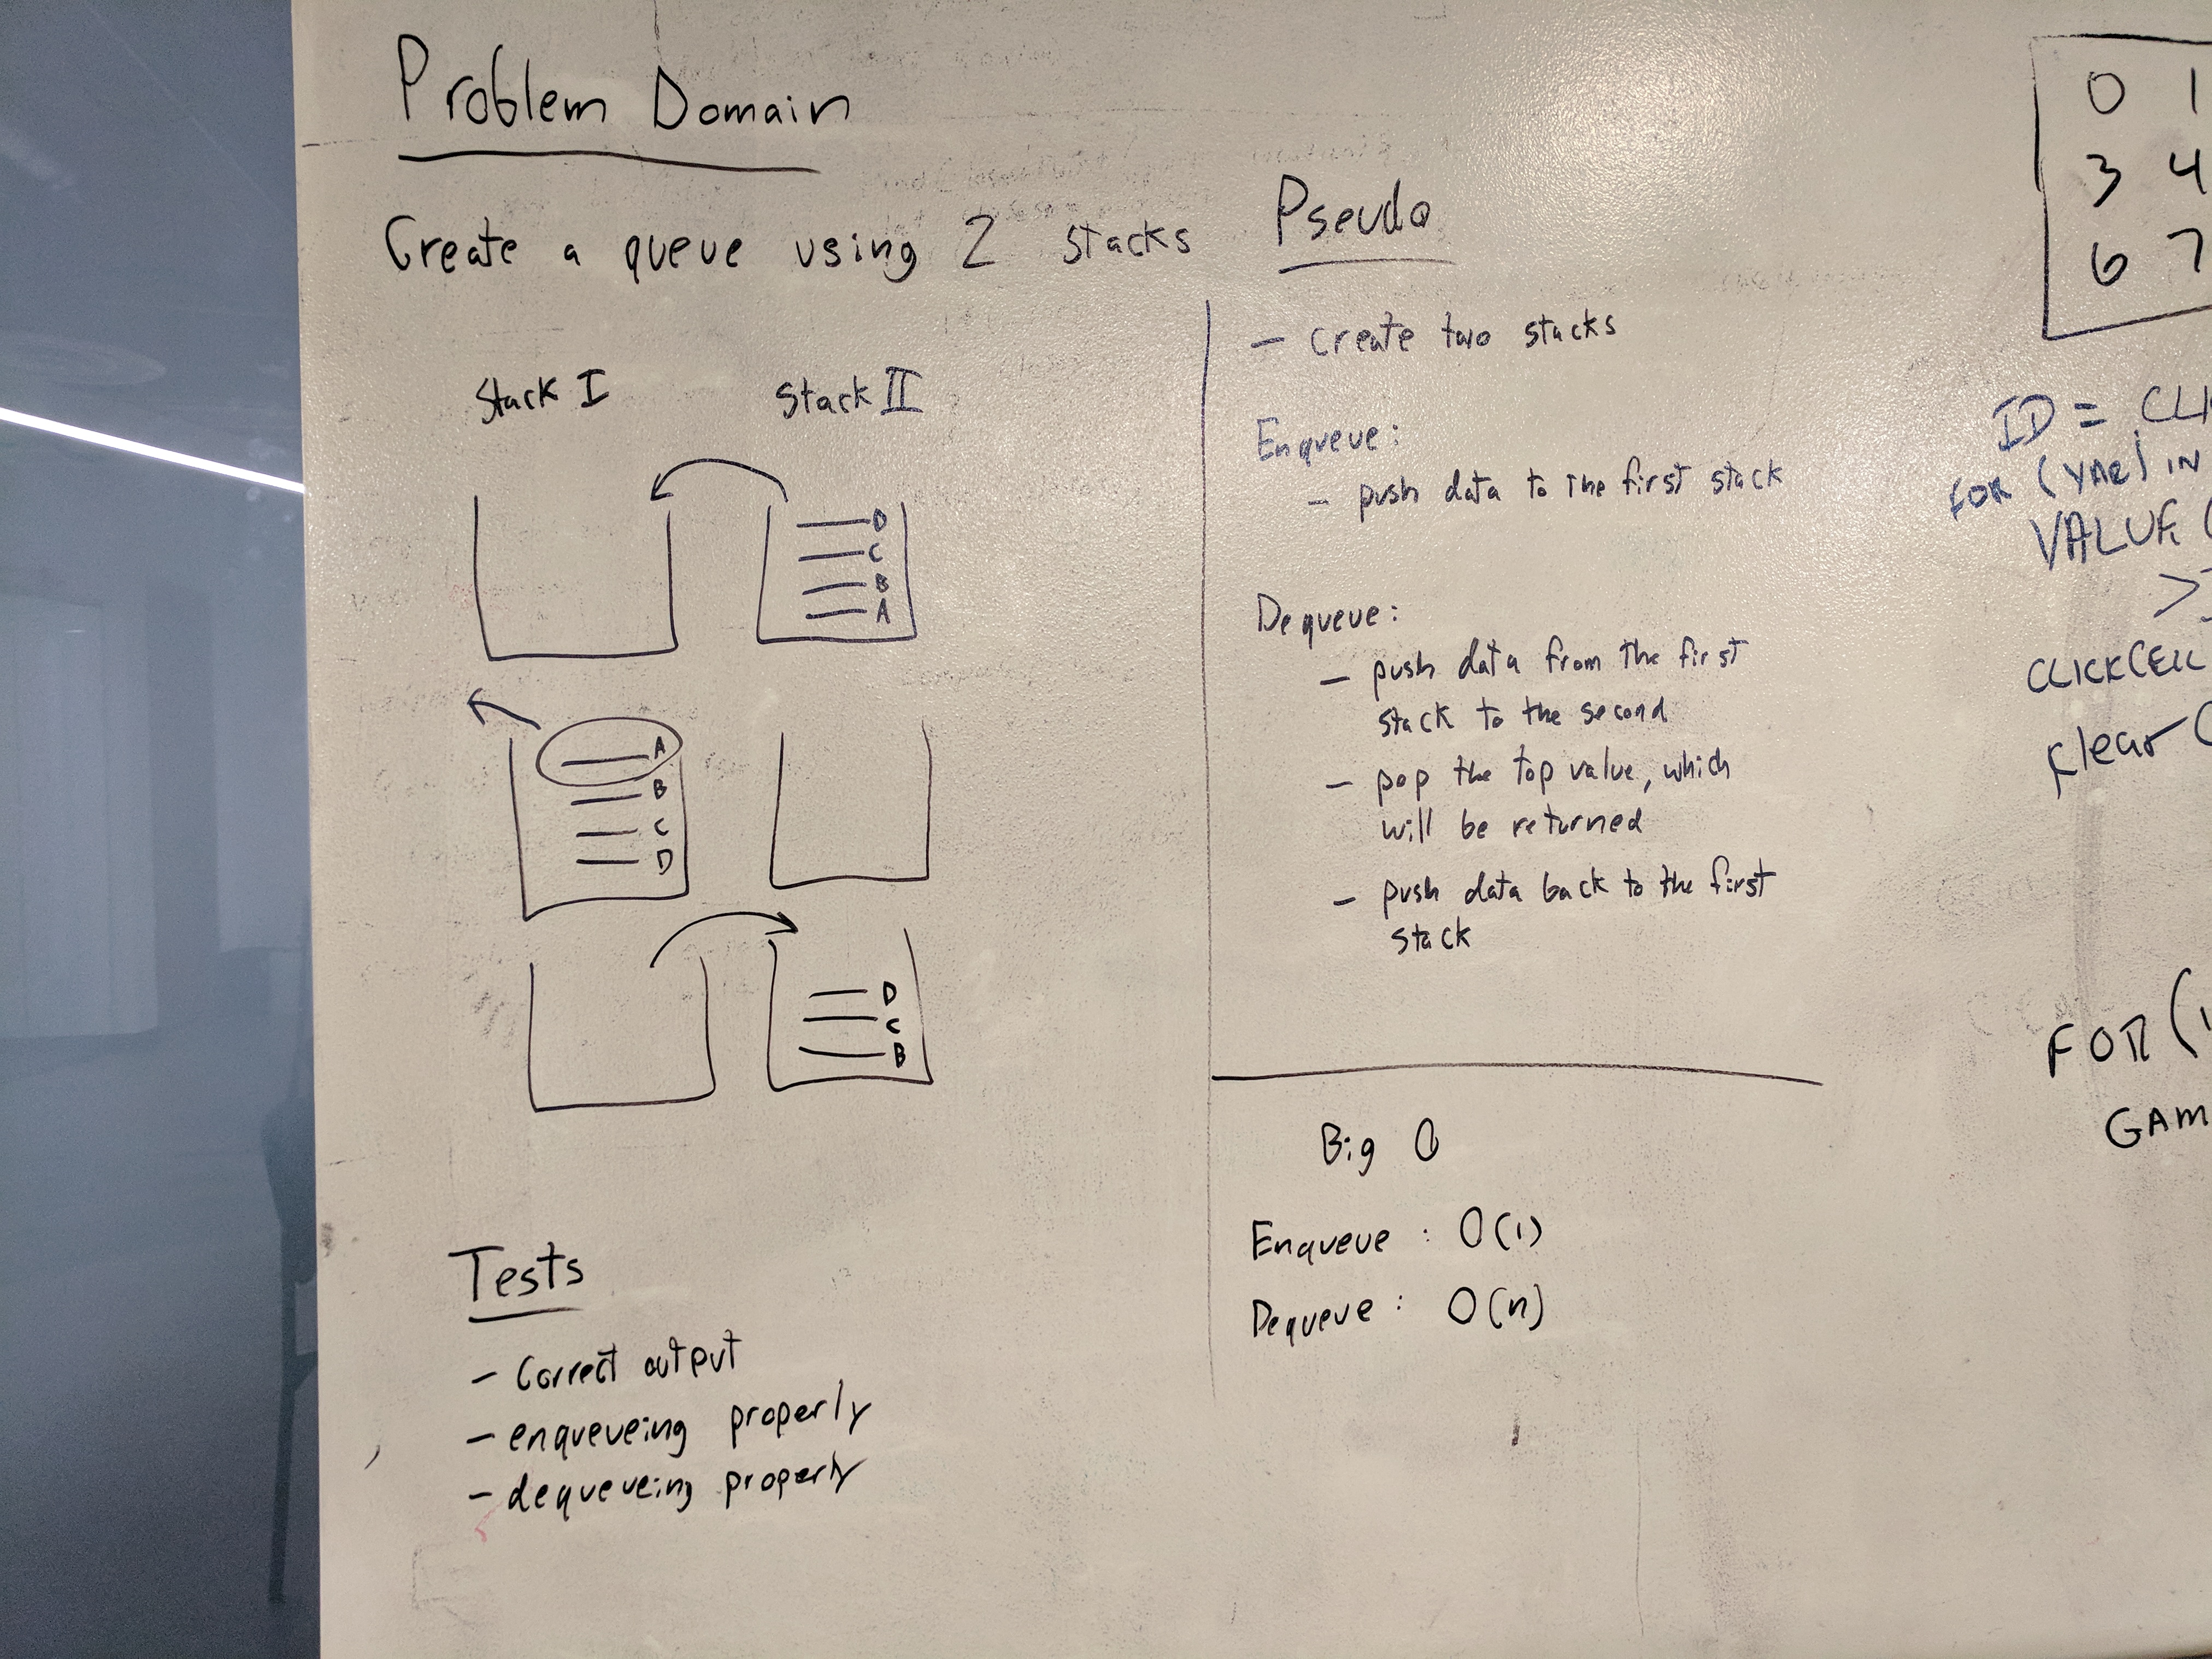 Problem Domain
Create a queue using 2 stacks
Stack I
Stack II
D
C
B
A
A
B
C
D
D
C
B
Tests
- Correct output
- enqueueing properly
- dequeueing properly
Pseudo
- create two stacks
Enqueue:
- push data to the first stack
Dequeue:
- push data from the first
stack to the second
- pop the top value, which
will be returned
- push data back to the first
stack
Big O
Enqueue : O(1)
Dequeue : O(n)
0 1
3 4
6 7
ID =
FOR (VAR) IN
VALUE (
>
CLICKCELL
FOR (
GAM